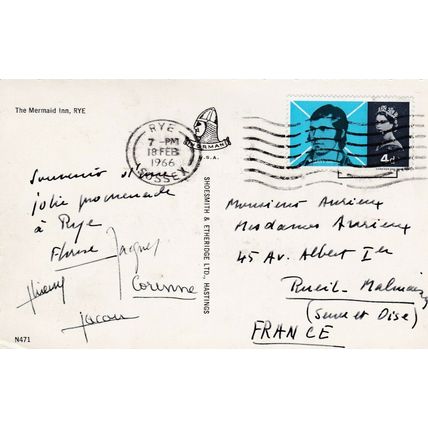 The Mermaid Inn, RYE
RYE
7 - PM
18 FEB
1966
SUSSEX
NORMAN
4d
Souvenir d'une
jolie promenade
à Rye
Jacques
Thierry
Corinne
SHOESMITH & ETHERIDGE LTD., HASTINGS
Monsieur Aurieux
Mesdames Aurieux
45 Av. Albert Ier
Rueil-Malmaison
(Seine et Oise)
FRANCE
N471